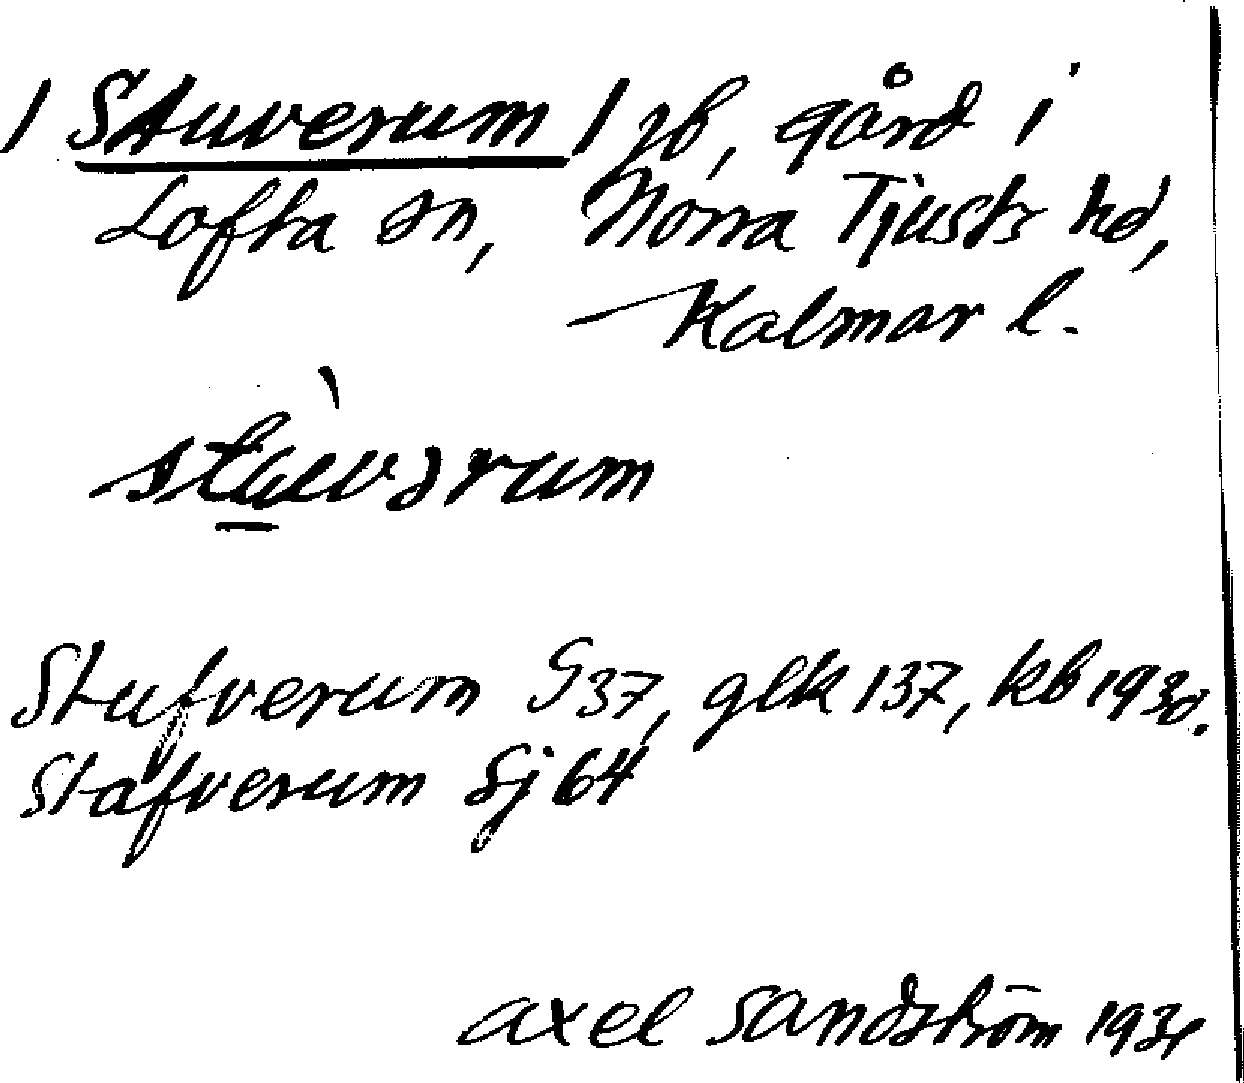 / Stuverum / jb, gård i
Lofta sn, Norra Tjusts hd,
Kalmar l.
stu̱vərum
Stufverum G37, glk 137, kb 1930.
Stafverum Sj 64
axel Sandström 1931